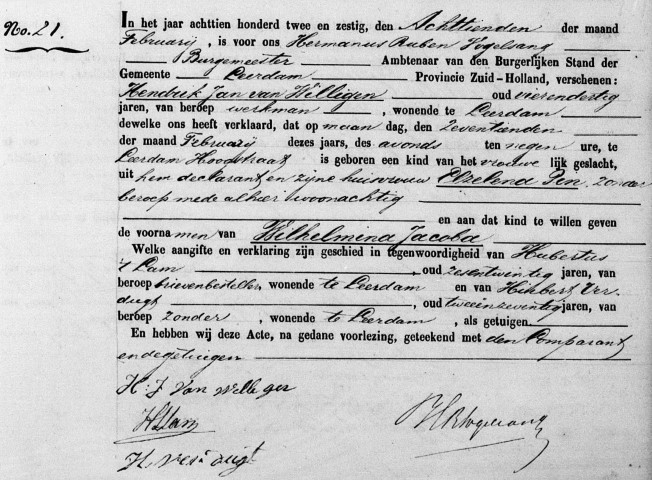 No. 21.
In het jaar achttien honderd twee en zestig, den Achttienden der maand
Februarij, is voor ons Hermanus Ruben Vogelsang
Burgemeester Ambtenaar van den Burgerlijken Stand der
Gemeente Leerdam Provincie Zuid-Holland, verschenen:
Hendrik Jan van Willigen oud vierendertig
jaren, van beroep werkman, wonende te Leerdam
dewelke ons heeft verklaard, dat op maan dag, den Zeventienden
der maand Februarij dezes jaars, des avonds ten negen ure, te
Leerdam Hoogstraat is geboren een kind van het vrouwe lijk geslacht,
uit hem declarant en zijne huisvrouw Elzelend Pen, zonder
beroep mede alhier woonachtig
en aan dat kind te willen geven
de voornamen van Wilhelmina Jacoba
Welke aangifte en verklaring zijn geschied in tegenwoordigheid van Hubertus
't Lam, oud zesentwintig jaren, van
beroep brievenbesteller, wonende te Leerdam en van Huibert Ver-
duijt, oud tweeenzeventig jaren, van
beroep zonder, wonende te Leerdam, als getuigen.
En hebben wij deze Acte, na gedane voorlezing, geteekend met den Comparant
en de getuigen
H: J Van Wellegen
H t Lam
HRVogelsang
H Verduijt